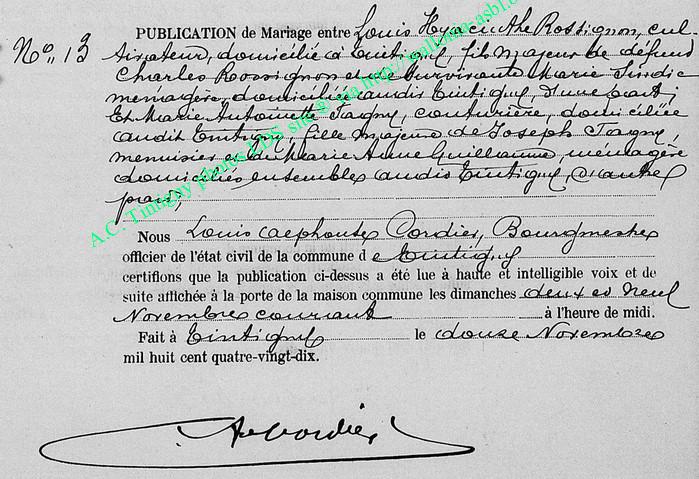 PUBLICATION de Mariage entre Louis Hyacinthe Rossignon, cul-
No. 13 tivateur, domicilié à Tintigny, fils majeur de défunt
Charles Rossignon et de survivante Marie
ménagère, domiciliée audit Tintigny, d'une part;
Et Marie Antoinette Tagny, couturière, domiciliée
audit Tintigny, fille majeure de Joseph Tagny,
menuisier et de Marie Anne Guillaume, ménagère
domiciliés ensembles audit Tintigny, d'autre
part;
A.C. Tintigny photos LDS site © via http://wallonia-asbl.
Nous Louis Alphonse Cordier, Bourgmestre
officier de l'état civil de la commune de Tintigny
certifions que la publication ci-dessus a été lue à haute et intelligible voix et de
suite affichée à la porte de la maison commune les dimanches deux et neuf
Novembre courant à l'heure de midi.
Fait à Tintigny le douze Novembre
mil huit cent quatre-vingt-dix.
Cordier